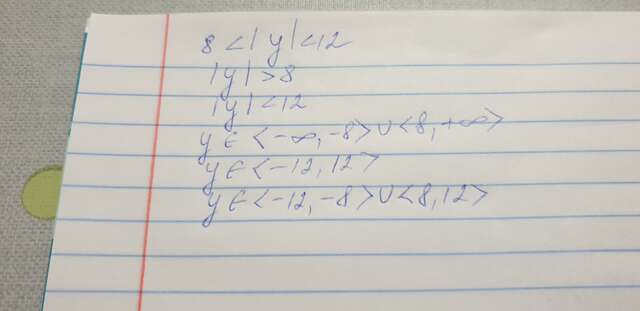 8 < | y | < 12
| y | > 8
| y | < 12
y ∈ < -∞, -8 > ∪ < 8, +∞ >
y ∈ < -12, 12 >
y ∈ < -12, -8 > ∪ < 8, 12 >